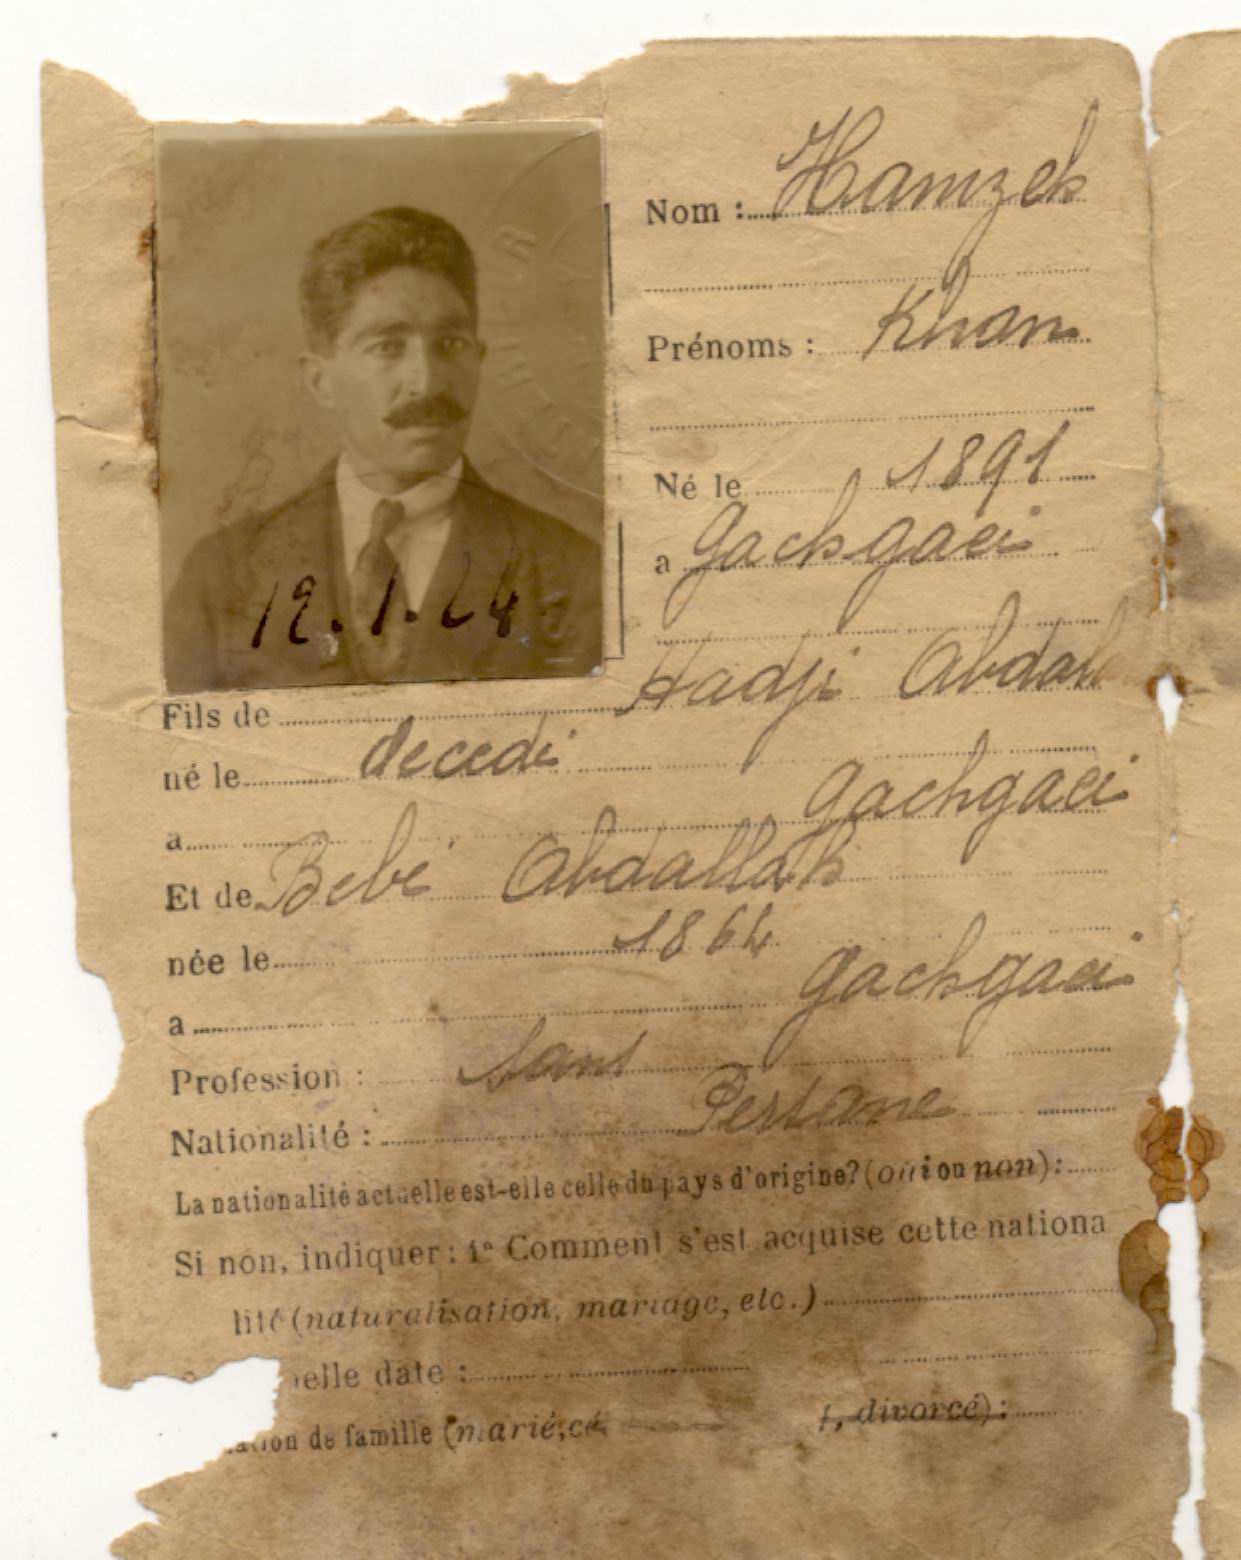 Nom : Hamzeh
Prénoms : Khan
Né le 1891
a Gachgaei
12.1.24
Fils de Hadji Abdall
né le decedé
a Gachgaei
Et de Bebé Abdallah
née le 1864
a Gachgaei
Profession : Sans
Nationalité : Persane
La nationalité actuelle est-elle celle du pays d'origine? (oui ou non):
Si non, indiquer: 1° Comment s'est acquise cette nationa
lité (naturalisation, mariage, etc.)
elle date :
ation de famille (marié, cé t, divorcé):